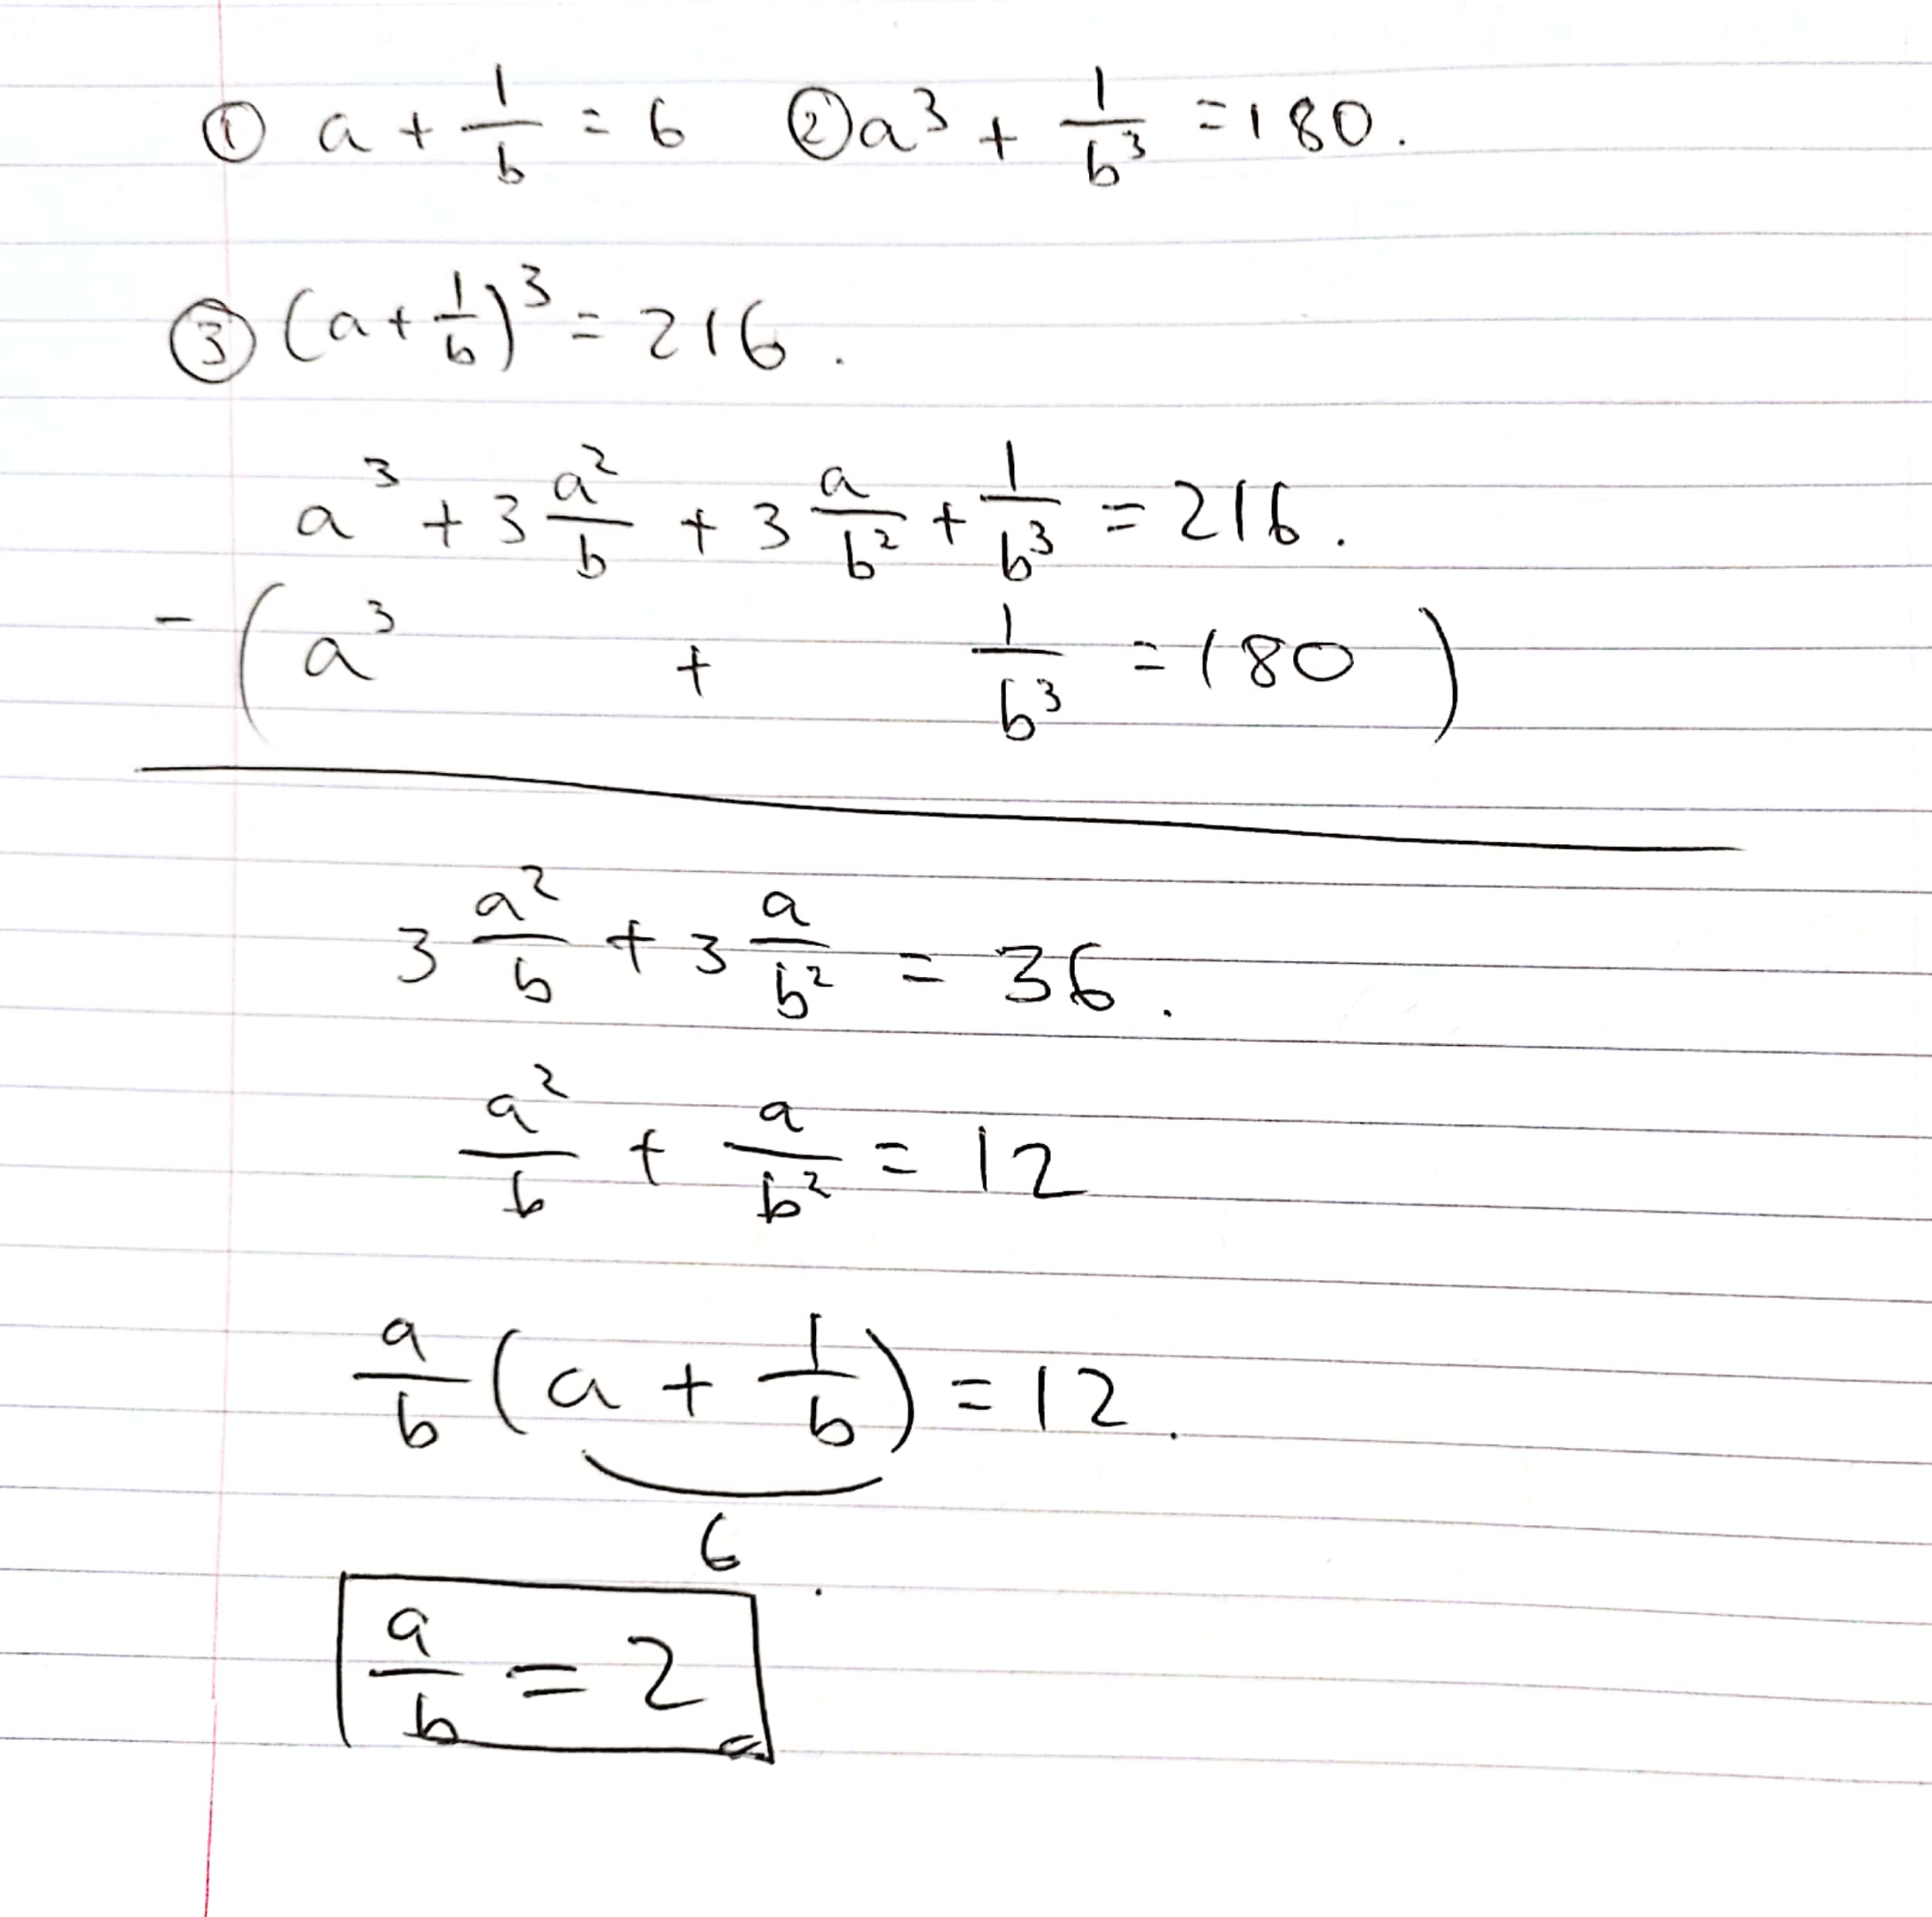 ① a + 1/b = 6 ② a³ + 1/b³ = 180.
③ (a + 1/b)³ = 216.
a³ + 3 a²/b + 3 a/b² + 1/b³ = 216.
- ( a³ + 1/b³ = 180 )
3 a²/b + 3 a/b² = 36.
a²/b + a/b² = 12
a/b (a + 1/b) = 12.
6
a/b = 2